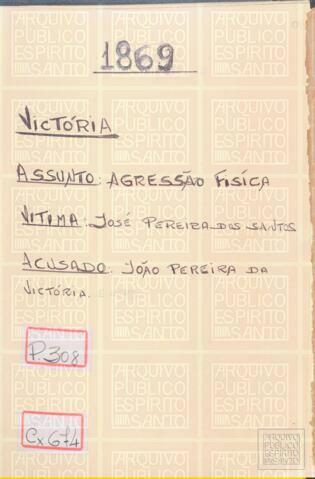 1869
VICTÓRIA
ASSUNTO: AGRESSÃO FISÍCA
VITIMA: JOSÉ PEREIRA DOS SANTOS
ACUSADO: JOÃO PEREIRA DA
VICTÓRIA.
P.308
Cx674
ARQUIVO
PÚBLICO
ESPÍRITO
SANTO